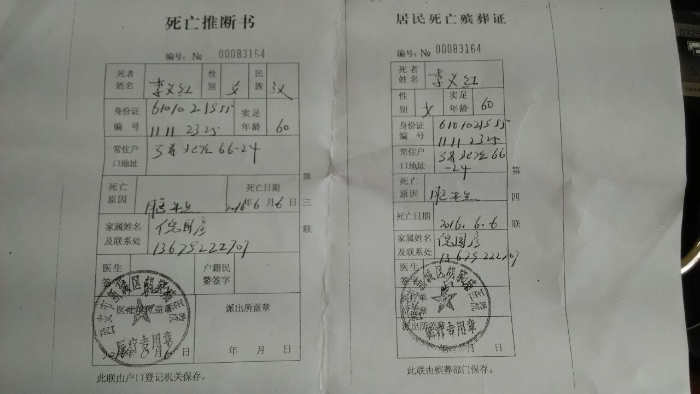 死亡推断书
编号：№ 00083164
死者姓名 李义红 性别 女 民族 汉
身份证编号 610102195511112325 实足年龄 60
常住户口地址 66-24
死亡原因 死亡日期 2016年6月6日
家属姓名及联系处 倪国彦
13679222707
医生 户籍民警签字
派出所盖章
医疗专用章
年 月 日
第三联
此联由户口登记机关保存。
居民死亡殡葬证
编号：№ 00083164
死者姓名 李义红
性别 女 实足年龄 60
身份证编号 610102195511112325
常住户口地址 66-24
死亡原因
死亡日期 2016.6.6
家属姓名及联系处 倪国彦
13679222707
医生
派出所盖章
年 月 日
第四联
此联由殡葬部门保存。